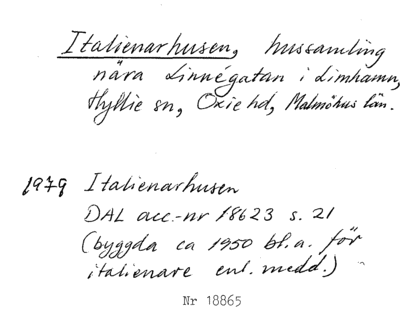 Italienarhusen, hussamling
nära Linnégatan i Limhamn,
Hyllie sn, Oxie hd, Malmöhus län.
1979 Italienarhusen
DAL acc.-nr 18623 s. 21
(byggda ca 1950 bl.a. för
italienare enl. medd.)
Nr 18865